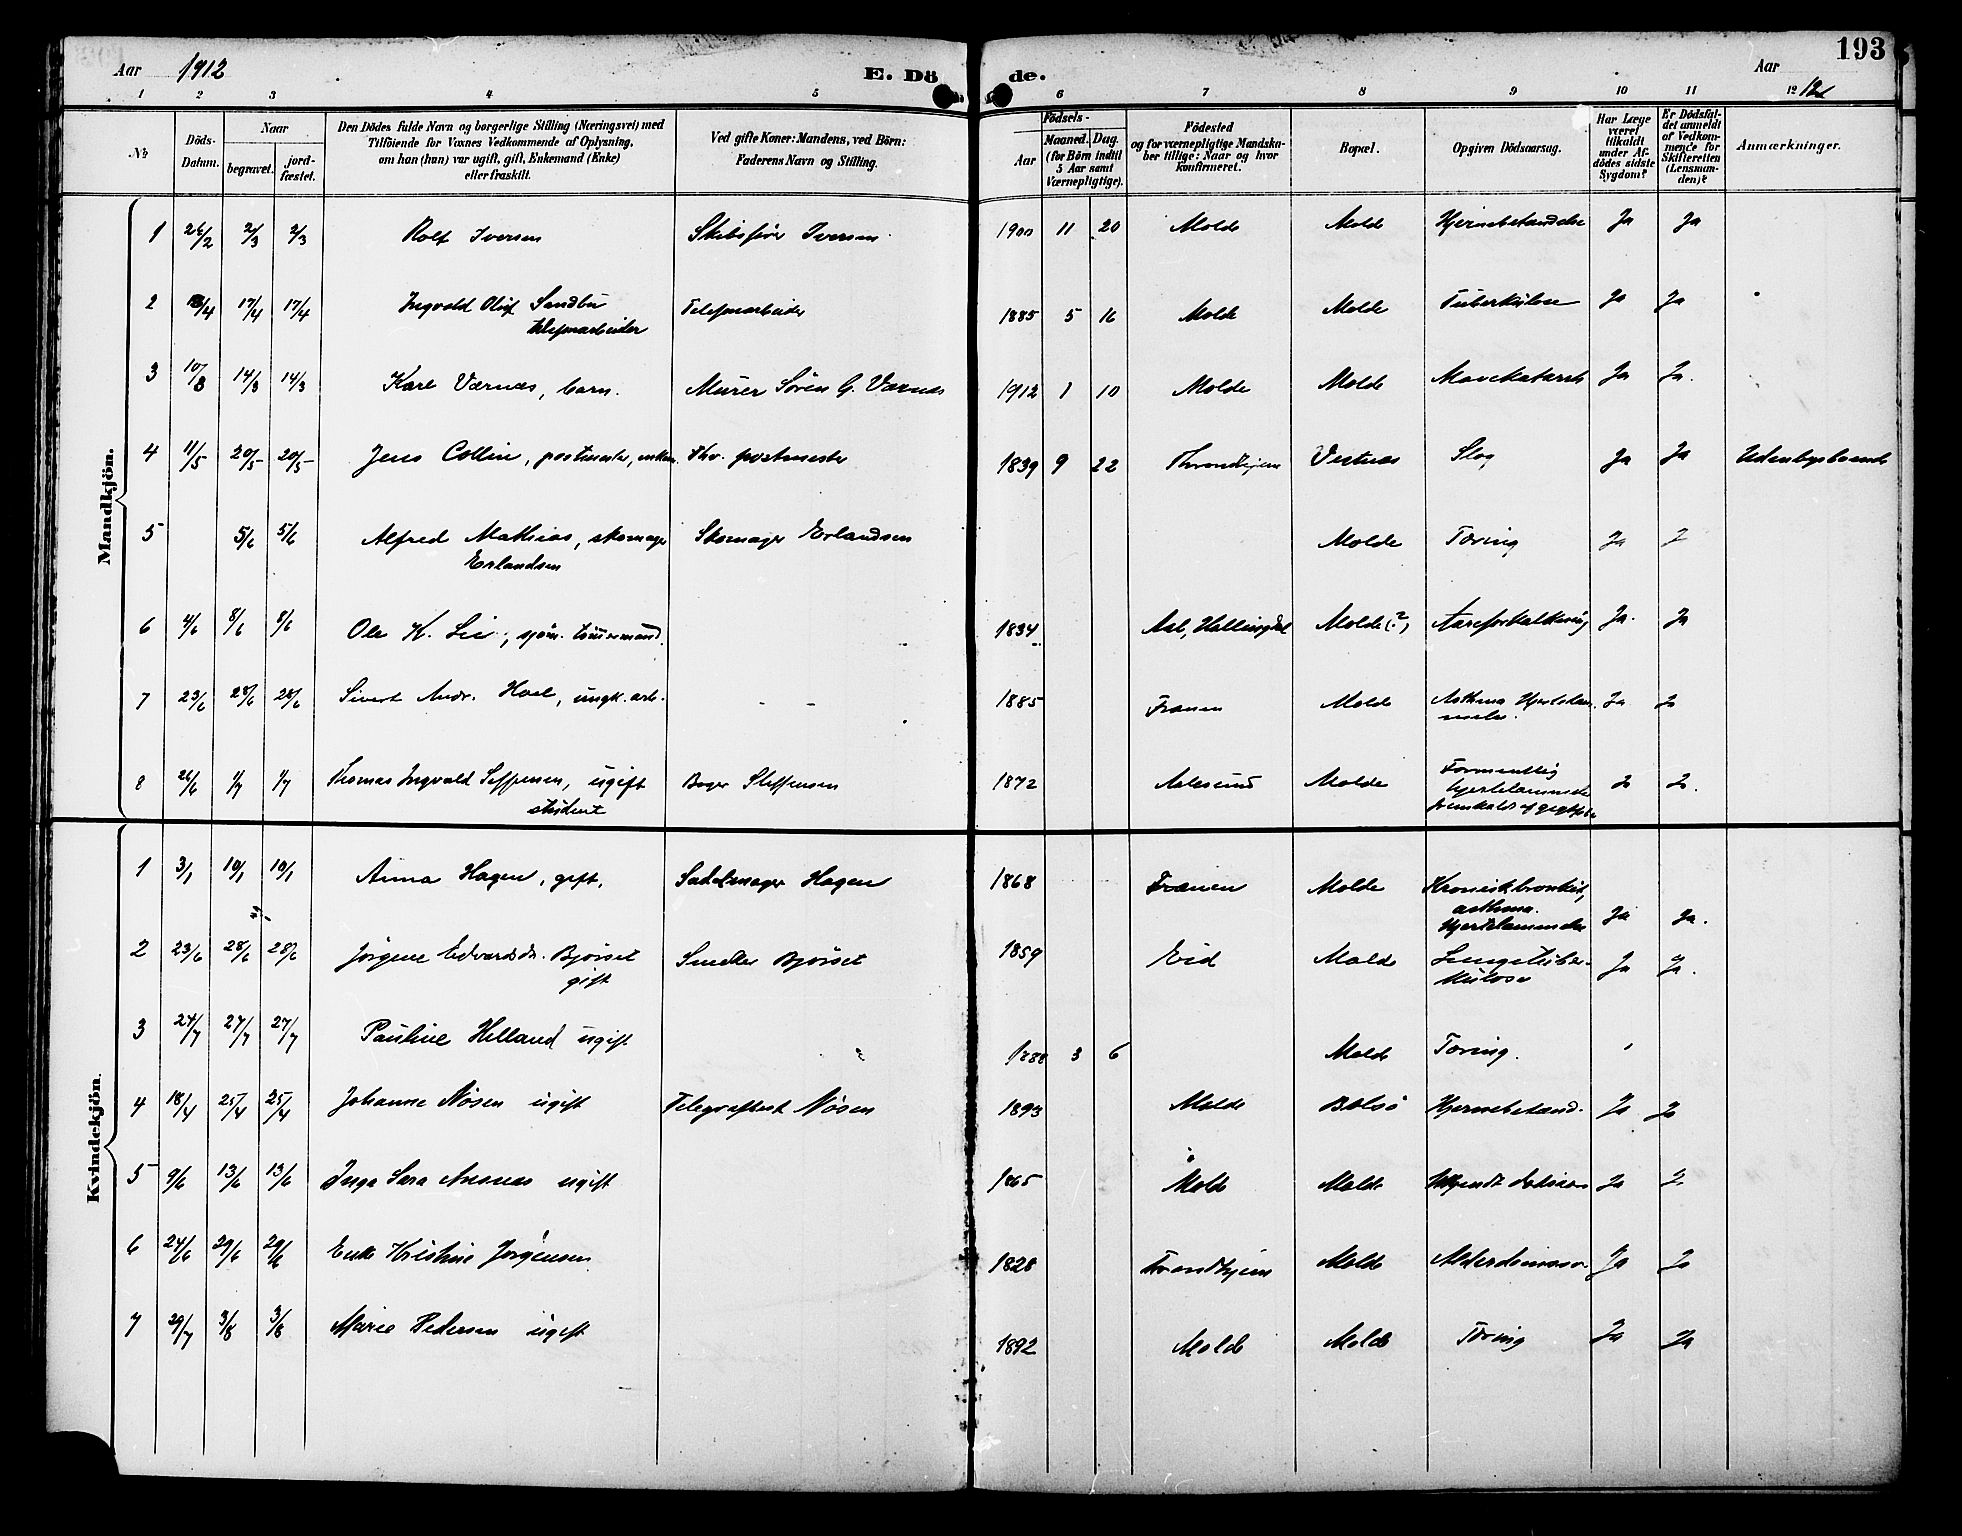 193
Aar 1912 E. Dö de. Aar 12
1 2 3 4 5 6 7 8 9 10 11 12
№
Döds-Datum.
Naar
begravet.
jord-fæstet.
Den Dödes fulde Navn og borgerlige Stilling (Næringsvei) med
Tilföiende for Voxnes Vedkommende af Oplysning,
om han (hun) var ugift, gift, Enkemand (Enke)
eller fraskilt.
Ved gifte Koner: Mandens, ved Börn:
Faderens Navn og Stilling.
Födsels-
Aar
Maaned. Dag.
(for Börn indtil
5 Aar samt
Værnepligtige).
Födested
og for værnepligtige Mandska-
ber tillige: Naar og hvor
konfirmeret.
Bopæl.
Opgiven Dödsaarsag.
Har Læge
været
tilkaldt
under Af-
dödes sidste
Sygdom?
Er Dödsfal-
det anmeldt
af Vedkom-
mende for
Skifteretten
(Lensman-
den)?
Anmærkninger.
Mandkjön.
1 26/2 2/3 2/3 Rolf Iversen Skibsfører Iversen 1900 11 20 Molde Molde Hjernebetændelse Ja Ja
2 13/4 17/4 17/4 Ingvald Oluf Sandbu Telefonarbeider 1885 5 16 Molde Molde Tuberkulose Ja Ja
telefonarbeider
3 10/3 14/3 14/3 Kare Værnæs, barn. Murer Søren G. Værnæs 1912 1 10 Molde Molde Mavekatarrh Ja Ja.
4 11/5 20/5 20/5 Jens Collin, postmester, enkem. Fhv. postmester 1839 9 22 Throndhjem Vestnæs Slag Ja Ja Udenbysboende
5 5/6 5/6 Alfred Mathias, skomager Skomager Erlandsen Molde Tæring Ja J
Erlandsen
6 4/6 8/6 8/6 Ole K. Lie, tömmermand. 1834 Aal, Hallingdal Molde (?) Aareforkalkning Ja. Ja
7 23/6 28/6 28/6 Sivert Andr. Hoel, ungk. arb. - - 1885 Frænen Molde Asthma Ja Ja
8 26/6 1/7 1/7 Thomas Ingvald Seffensen, ugift Bager Steffensen 1872 Aalesund Molde Formentlig
student hjertelammelse
Kvindekjön.
1 3/1 10/1 10/1 Anna Hagen, gift. Sadelmager Hagen 1868 Frænen Molde Kronisk bronkit,
asthma. Ja Ja.
Hjertelammelse
2 23/6 28/6 28/6 Jörgine Edvardsdr. Björset Smed Björset 1859 Eid Molde Lungetuber- Ja Ja.
gift kulose
3 24/7 27/7 27/7 Pauline Helland ugift 1888 3 6 Molde Tæring.
4 18/4 25/4 25/4 Johanne Nøsen ugift Telegrafbest Nøsen 1893 Molde Bolsö Hjernebetænd. Ja Ja
5 9/6 13/6 13/6 Inga Sara ugift 1865 Molde Molde Ja J
6 24/6 29/6 29/6 Enke Kristine Jørgensen 1828 Trondhjem Molde Ja Ja
7 29/7 3/8 3/8 Marie Pedersen ugift 1892 Molde Molde Tæring Ja Ja